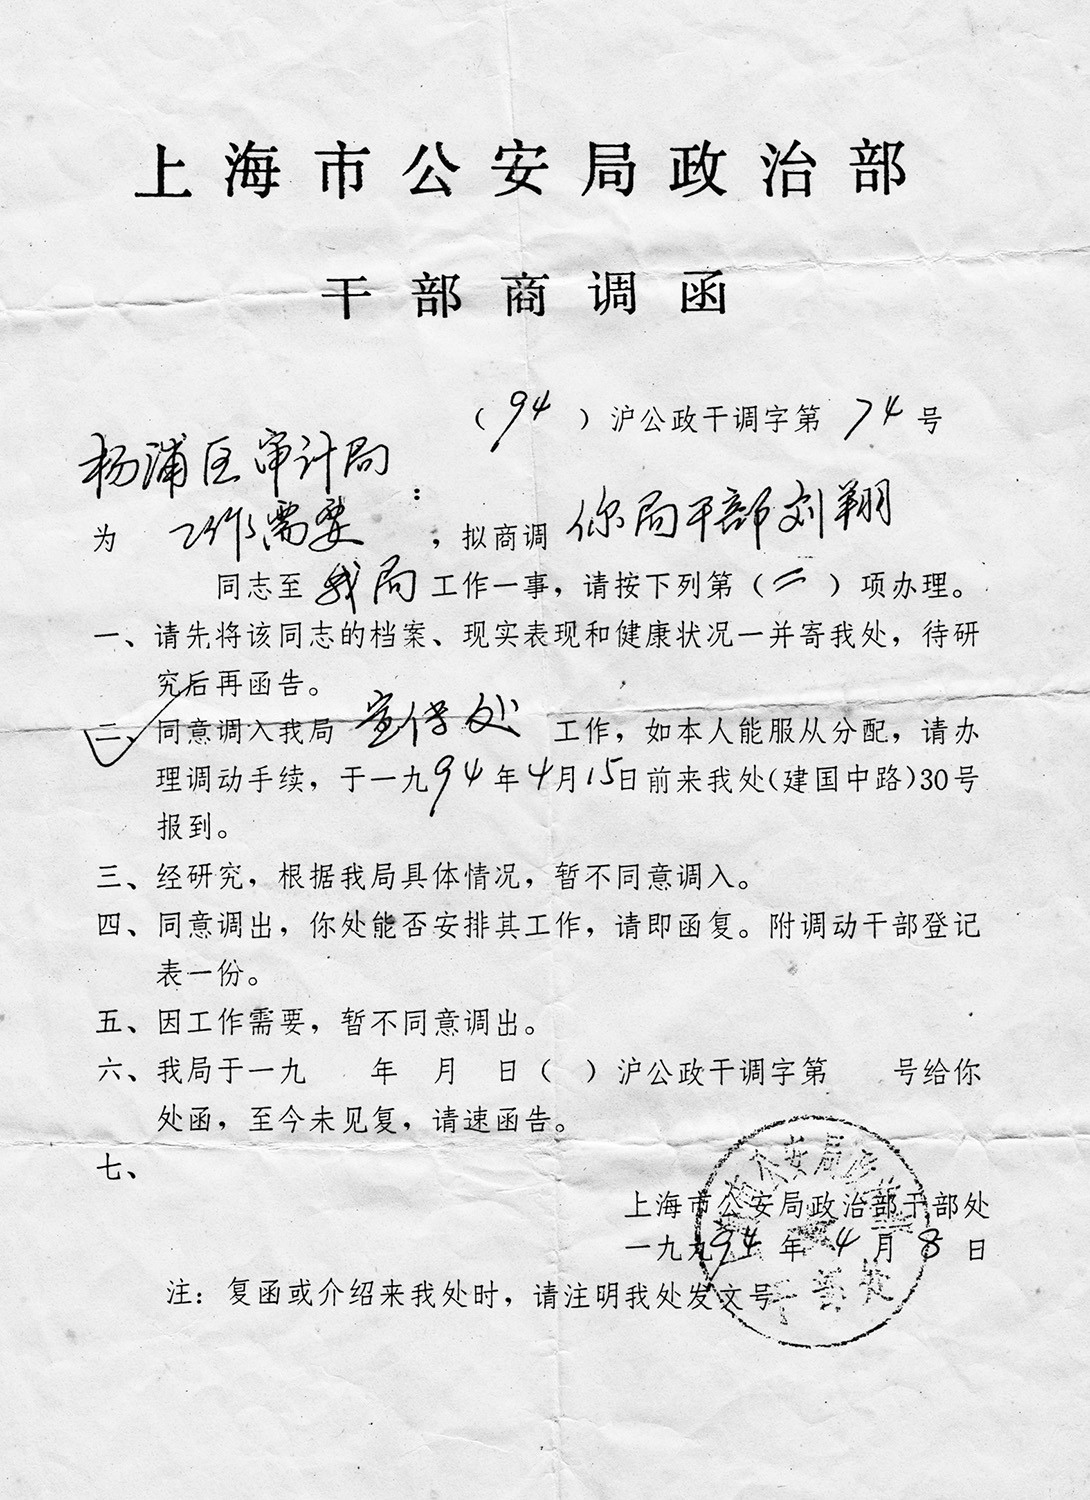 上海市公安局政治部
干部商调函
（94）沪公政干调字第 74 号
杨浦区审计局：
为 工作需要 ，拟商调 你局干部刘翔
同志至 我局 工作一事，请按下列第（二）项办理。
一、请先将该同志的档案、现实表现和健康状况一并寄我处，待研
究后再函告。
二、同意调入我局 宣传处 工作，如本人能服从分配，请办
理调动手续，于一九94年4月15日前来我处（建国中路）30号
报到。
三、经研究，根据我局具体情况，暂不同意调入。
四、同意调出，你处能否安排其工作，请即函复。附调动干部登记
表一份。
五、因工作需要，暂不同意调出。
六、我局于一九 年 月 日（ ）沪公政干调字第 号给你
处函，至今未见复，请速函告。
七、
上海市公安局政治部干部处
一九九94年4月8日
注：复函或介绍来我处时，请注明我处发文号
公安局政
干部处